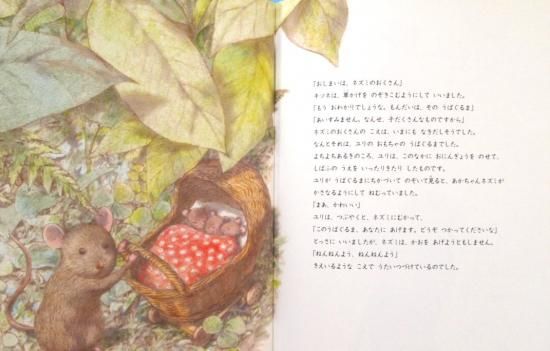 「おしまいは、ネズミのおくさん」
キツネは、草かげを のぞきこむようにして いいました。
「もう おわかりでしょうな。もんだいは、その うばぐるま」
「あいすみません。なんせ、子だくさんなものですから」
ネズミのおくさんの こえは、いまにも なきだしそうでした。
なんとそれは、ユリの おもちゃの うばぐるまでした。
よちよちあるきのころ、ユリは、このなかに おにんぎょうを のせて、
しばふの うえを いったりきたり したものです。
ユリが うばぐるまにちかづいて のぞいて見ると、あかちゃんネズミが
かさなるようにして ねむっていました。
「まあ、かわいい」
ユリは、つぶやくと、ネズミにむかって、
「このうばぐるま、あなたに あげます。どうぞ つかってくださいな」
とっさに いいましたが、ネズミは、かおを あげようともしません。
「ねんねんよう、ねんねんよう」
きえいるような こえで うたいつづけているのでした。